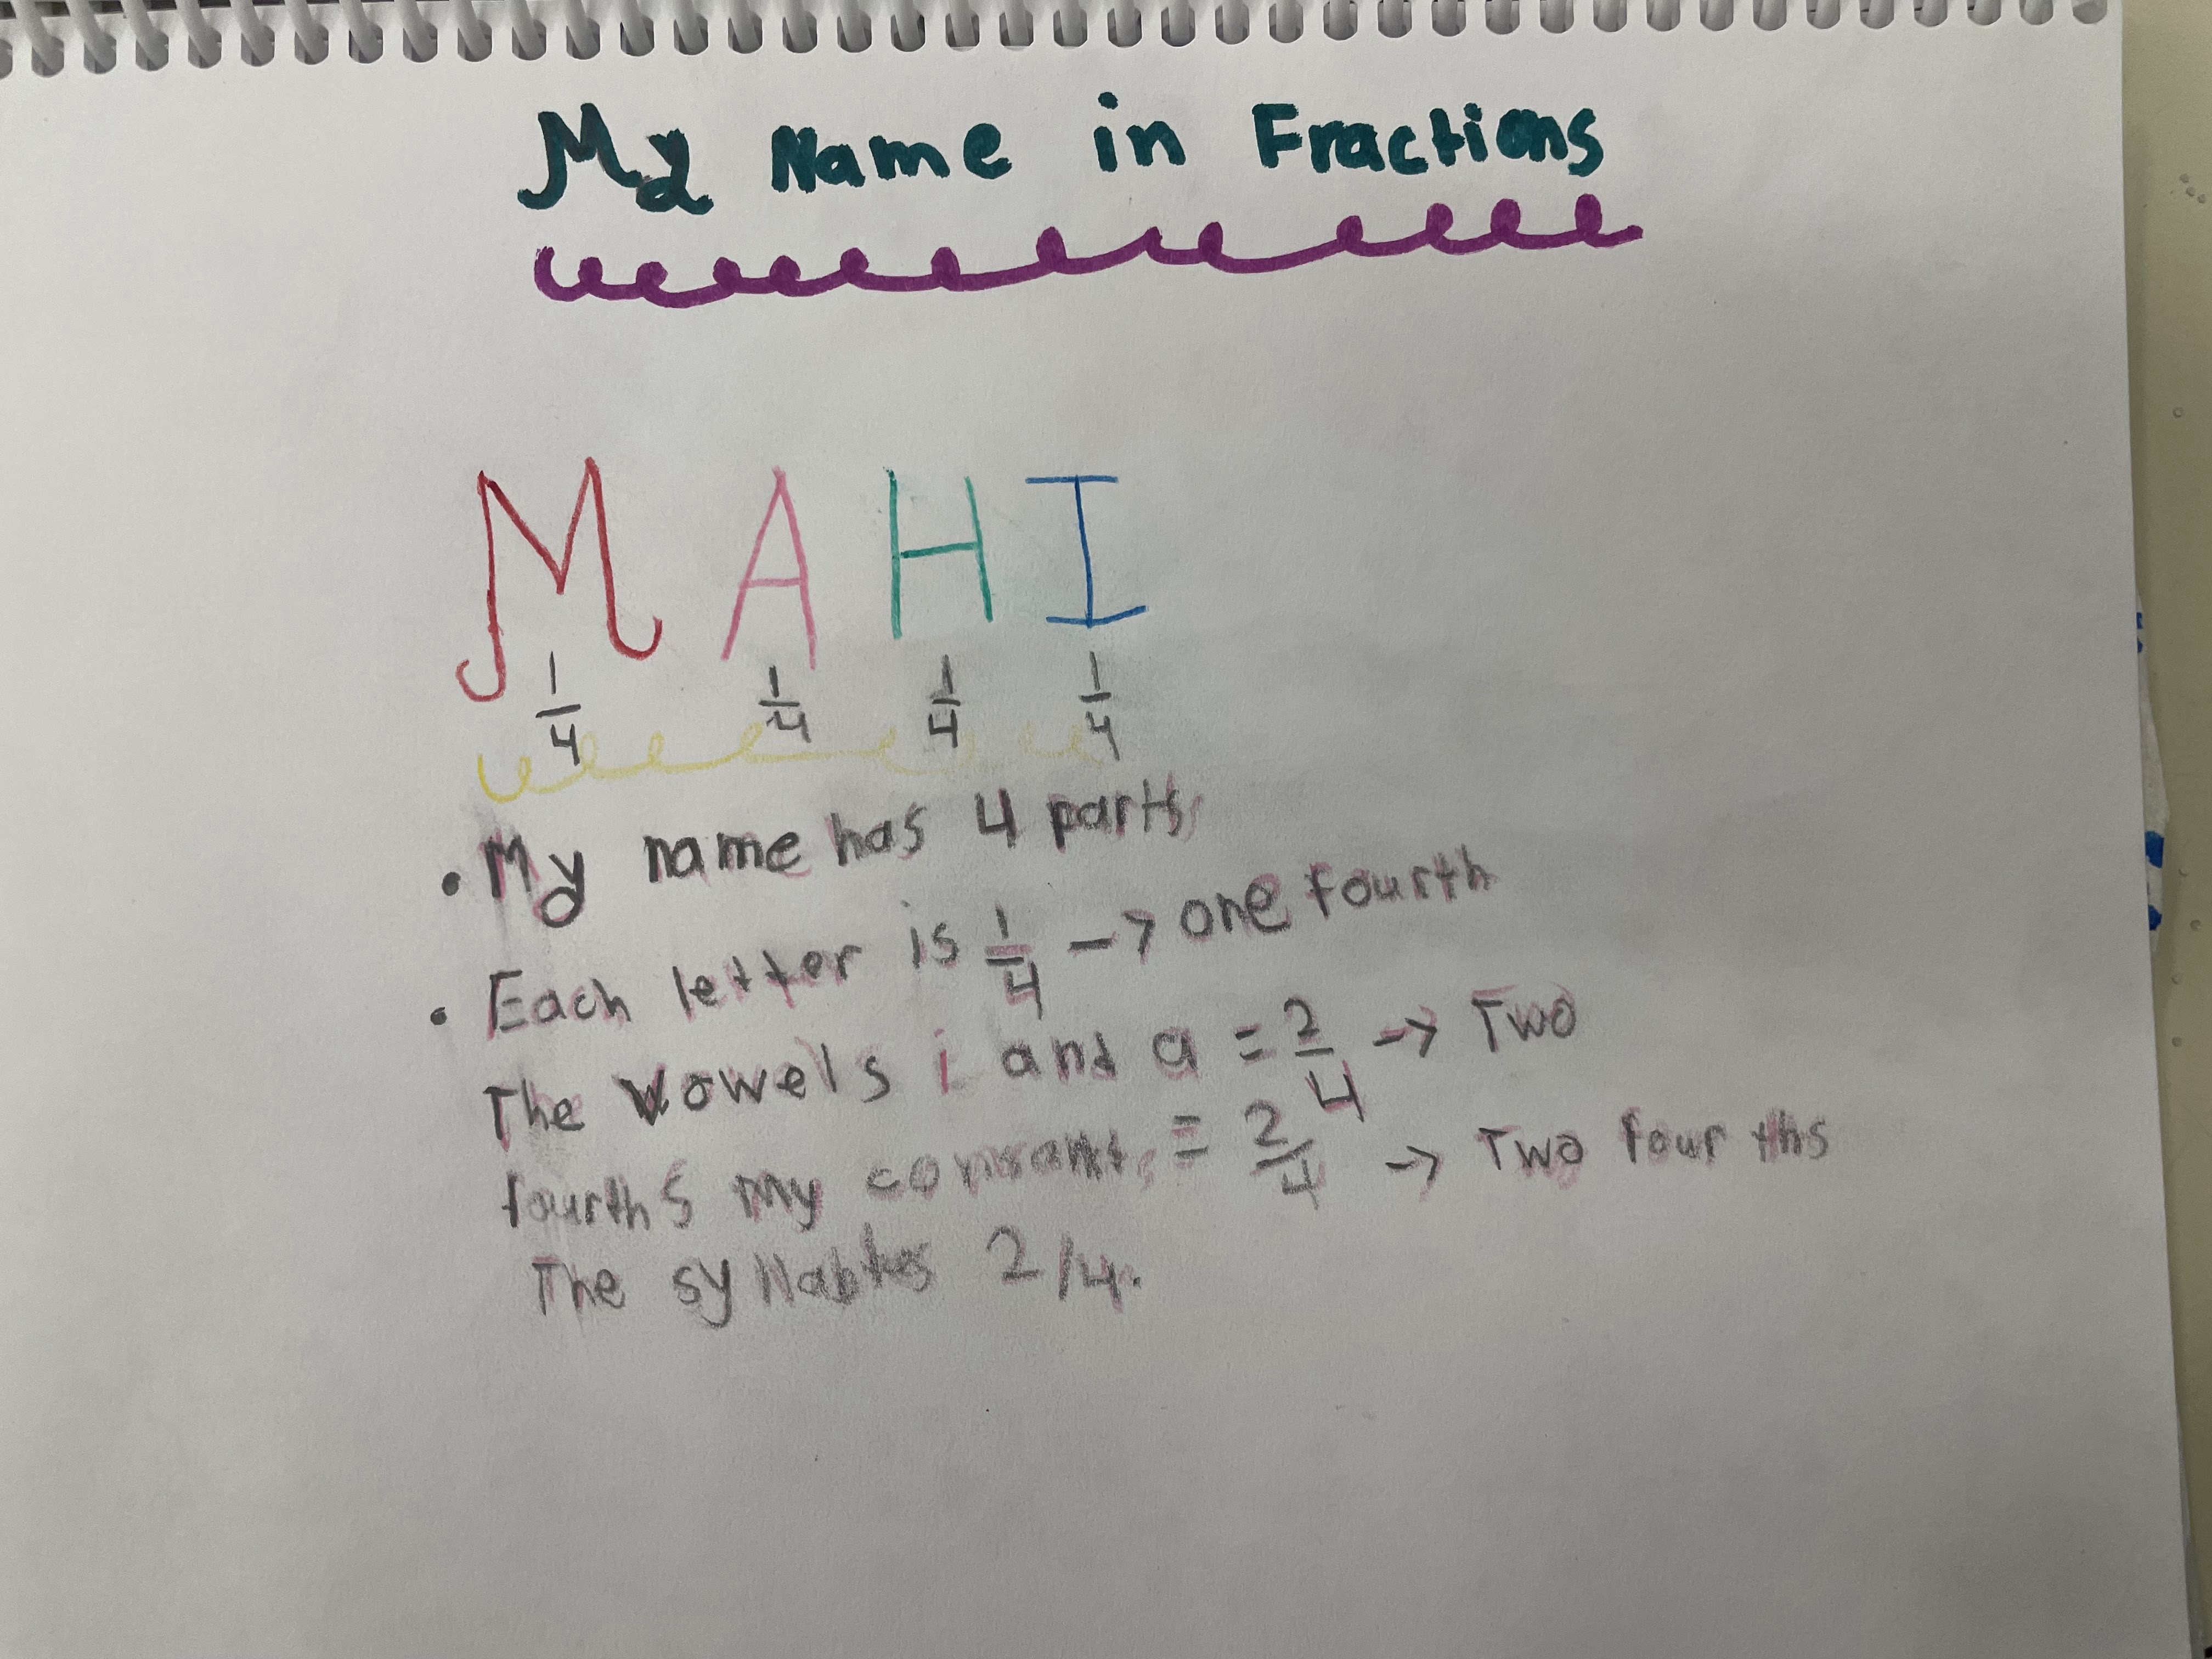 My Name in Fractions
MAHI
1/4 1/4 1/4 1/4
• My name has 4 parts
• Each letter is 1/4 -> one fourth
The vowels i and a = 2/4 -> Two
fourths my = 2/4 -> Two fourths
The syllables 2/4.